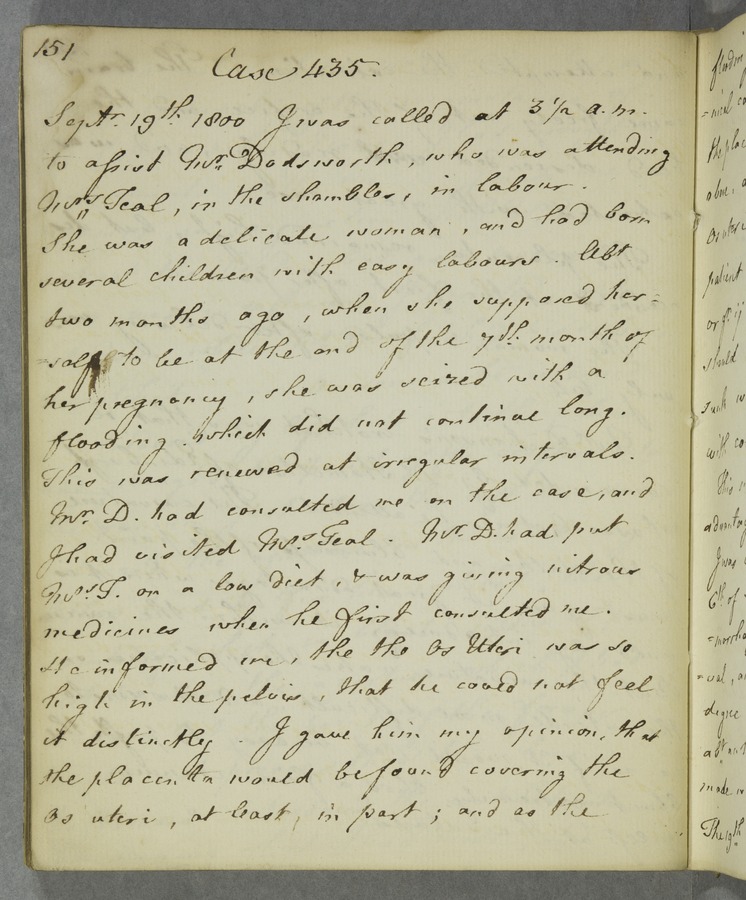 151
Case 435.
Septr. 19th. 1800 I was called at 3 1/2 a.m.
to assist Mr. Dodsworth, who was attending
Mrs. Teal, in the shambles, in labour.
She was a delicate woman, and had born
several children with easy labours. Abt
two months ago, when she supposed her=
=self to be at the end of the 7th. month of
her pregnancy, she was seized with a
flooding. which did not continue long.
This was renewed at irregular intervals.
Mr. D. had consulted me on the case, and
I had visited Mrs. Teal. Mr. D. had put
Mrs. T. on a low diet, & was giving nitrous
medicines when he first consulted me.
He informed me, the the Os Uteri was so
high in the pelvis, that he could not feel
it distinctly. I gave him my opinion, that
the placenta would be found covering the
os uteri, at least, in part; and as the
flooding
the plac
patient
should
such w
with co
This
advantag
I was
6th of
degree
made
The 19th